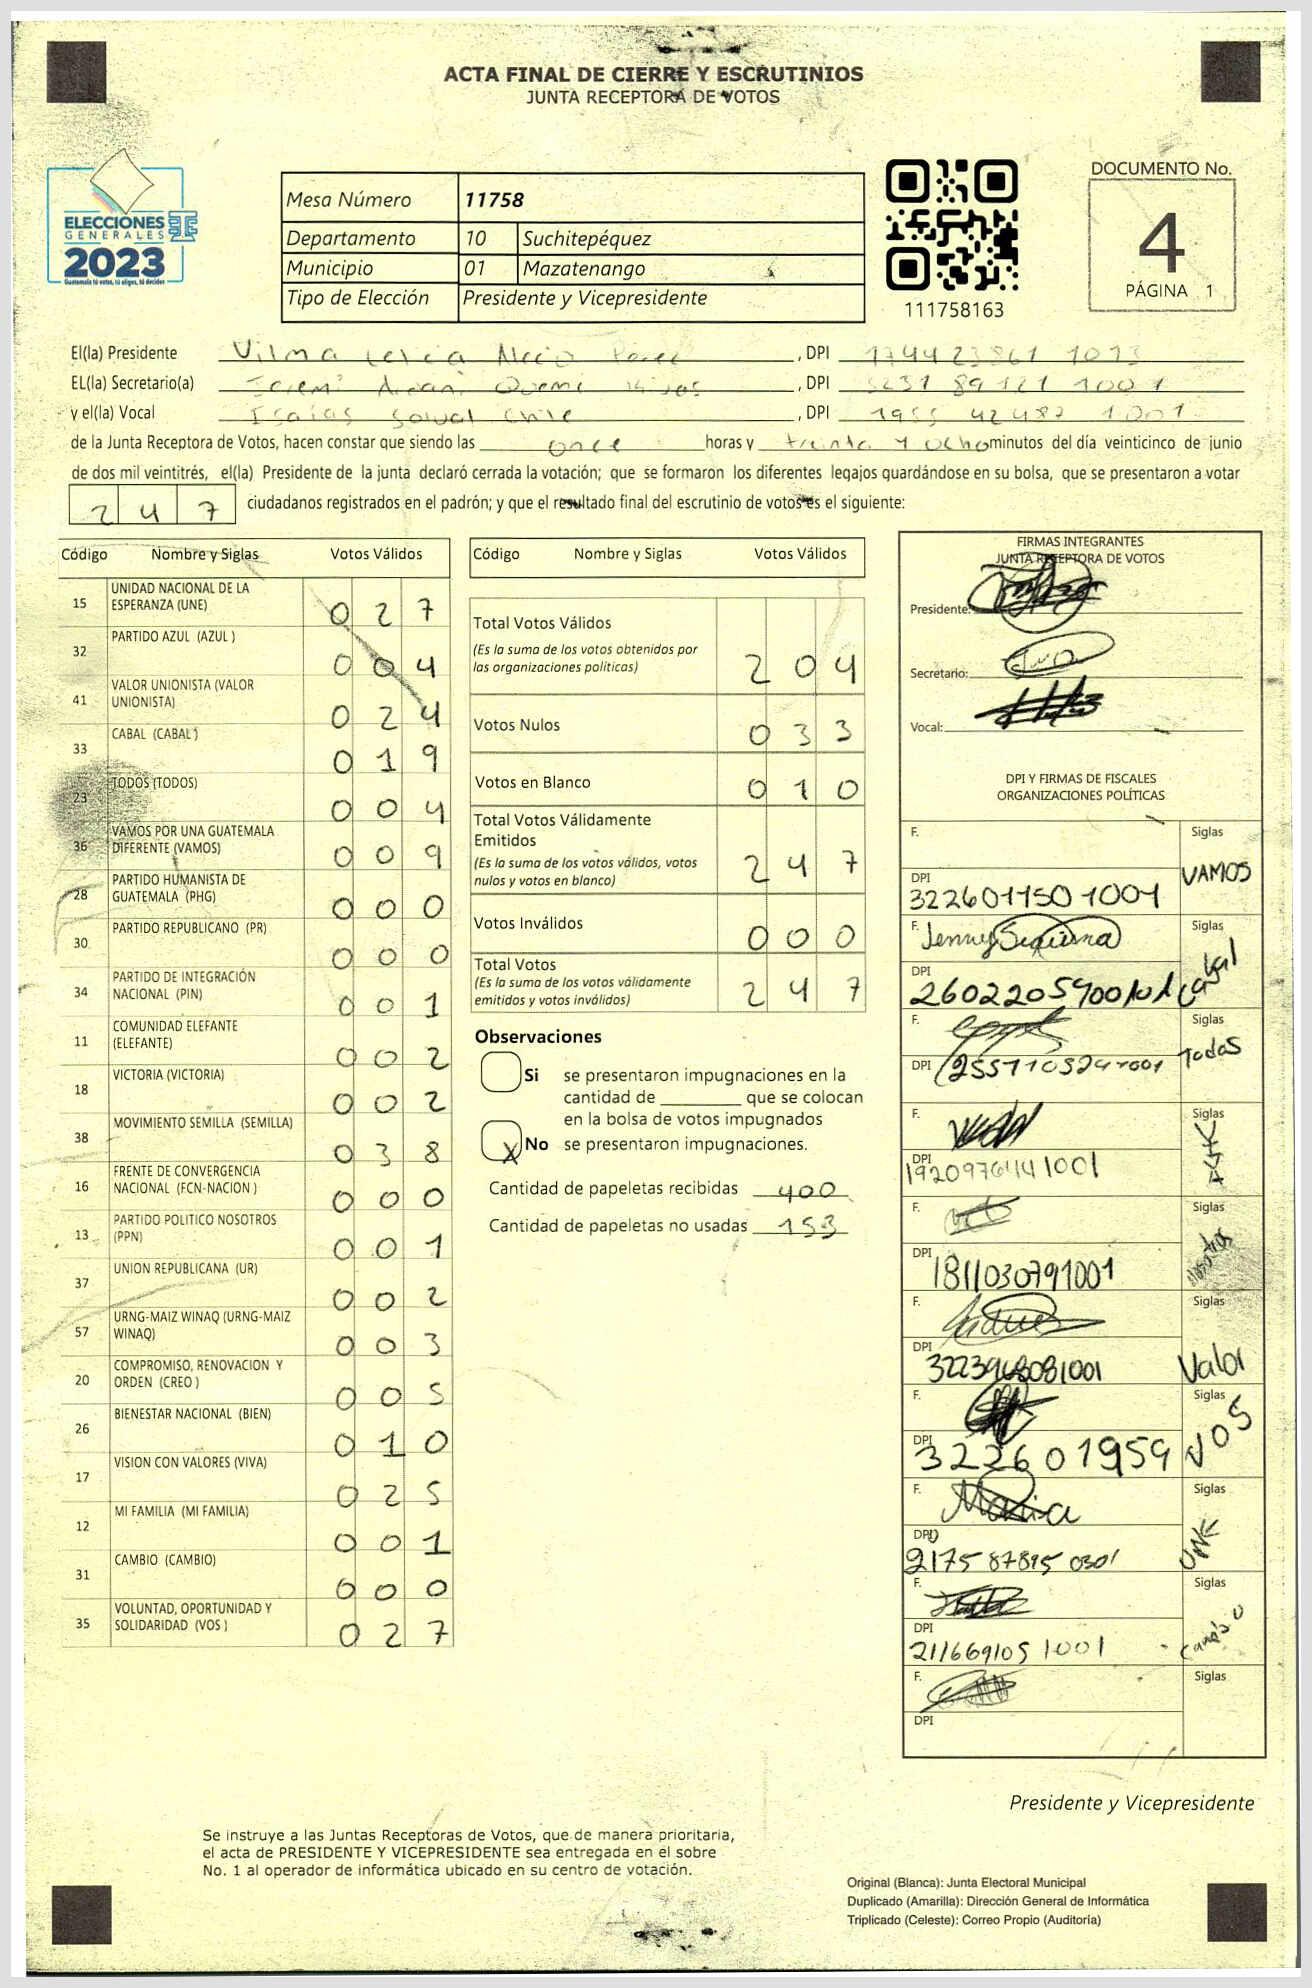 ACTA FINAL DE CIERRE Y ESCRUTINIOS
JUNTA RECEPTORA DE VOTOS
ELECCIONES
GENERALES
2023
Guatemala tú votas, tú eliges, tú decides
Mesa Número 11758
Departamento 10 Suchitepéquez
Municipio 01 Mazatenango
Tipo de Elección Presidente y Vicepresidente
111758163
DOCUMENTO No.
4
PÁGINA 1
El(la) Presidente Vilma , DPI
EL(la) Secretario(a) , DPI
y el(la) Vocal Isaías , DPI
de la Junta Receptora de Votos, hacen constar que siendo las once horas y treinta y ocho minutos del día veinticinco de junio
de dos mil veintitrés, el(la) Presidente de la junta declaró cerrada la votación; que se formaron los diferentes legajos guardándose en su bolsa, que se presentaron a votar
247 ciudadanos registrados en el padrón; y que el resultado final del escrutinio de votos es el siguiente:
Código Nombre y Siglas Votos Válidos
15 UNIDAD NACIONAL DE LA ESPERANZA (UNE) 0 2 7
32 PARTIDO AZUL (AZUL ) 0 0 4
41 VALOR UNIONISTA (VALOR UNIONISTA) 0 2 4
33 CABAL (CABAL ) 0 1 9
23 TODOS (TODOS) 0 0 4
36 VAMOS POR UNA GUATEMALA DIFERENTE (VAMOS) 0 0 9
28 PARTIDO HUMANISTA DE GUATEMALA (PHG) 0 0 0
30 PARTIDO REPUBLICANO (PR) 0 0 0
34 PARTIDO DE INTEGRACIÓN NACIONAL (PIN) 0 0 1
11 COMUNIDAD ELEFANTE (ELEFANTE) 0 0 2
18 VICTORIA (VICTORIA) 0 0 2
38 MOVIMIENTO SEMILLA (SEMILLA) 0 3 8
16 FRENTE DE CONVERGENCIA NACIONAL (FCN-NACION ) 0 0 0
13 PARTIDO POLITICO NOSOTROS (PPN) 0 0 1
37 UNION REPUBLICANA (UR) 0 0 2
57 URNG-MAIZ WINAQ (URNG-MAIZ WINAQ) 0 0 3
20 COMPROMISO, RENOVACION Y ORDEN (CREO ) 0 0 5
26 BIENESTAR NACIONAL (BIEN) 0 1 0
17 VISION CON VALORES (VIVA) 0 2 5
12 MI FAMILIA (MI FAMILIA) 0 0 1
31 CAMBIO (CAMBIO) 0 0 0
35 VOLUNTAD, OPORTUNIDAD Y SOLIDARIDAD (VOS ) 0 2 7
Código Nombre y Siglas Votos Válidos
Total Votos Válidos
(Es la suma de los votos obtenidos por
las organizaciones políticas) 2 0 4
Votos Nulos 0 3 3
Votos en Blanco 0 1 0
Total Votos Válidamente
Emitidos
(Es la suma de los votos válidos, votos
nulos y votos en blanco) 2 4 7
Votos Inválidos 0 0 0
Total Votos
(Es la suma de los votos válidamente
emitidos y votos inválidos) 2 4 7
Observaciones
Si se presentaron impugnaciones en la
cantidad de ________ que se colocan
en la bolsa de votos impugnados
X No se presentaron impugnaciones.
Cantidad de papeletas recibidas 400
Cantidad de papeletas no usadas 153
FIRMAS INTEGRANTES
JUNTA RECEPTORA DE VOTOS
Presidente:
Secretario:
Vocal:
DPI Y FIRMAS DE FISCALES
ORGANIZACIONES POLÍTICAS
F. Siglas
DPI VAMOS
3226011501001
F. Jenny Siglas
DPI Cabal
F. Siglas
DPI Todos
F. Siglas
DPI
1920976441001
F. Siglas
DPI 1811030791001 Nosotros
F. Siglas
DPI Valor
3223968081001
F. Siglas
DPI VOS
322601959
F. Maria Siglas
DPI UNE
2175 87895 0301
F. Siglas
DPI Cambio
211669105 1001
F. Siglas
DPI
Presidente y Vicepresidente
Se instruye a las Juntas Receptoras de Votos, que de manera prioritaria,
el acta de PRESIDENTE Y VICEPRESIDENTE sea entregada en el sobre
No. 1 al operador de informática ubicado en su centro de votación.
Original (Blanca): Junta Electoral Municipal
Duplicado (Amarilla): Dirección General de Informática
Triplicado (Celeste): Correo Propio (Auditoría)